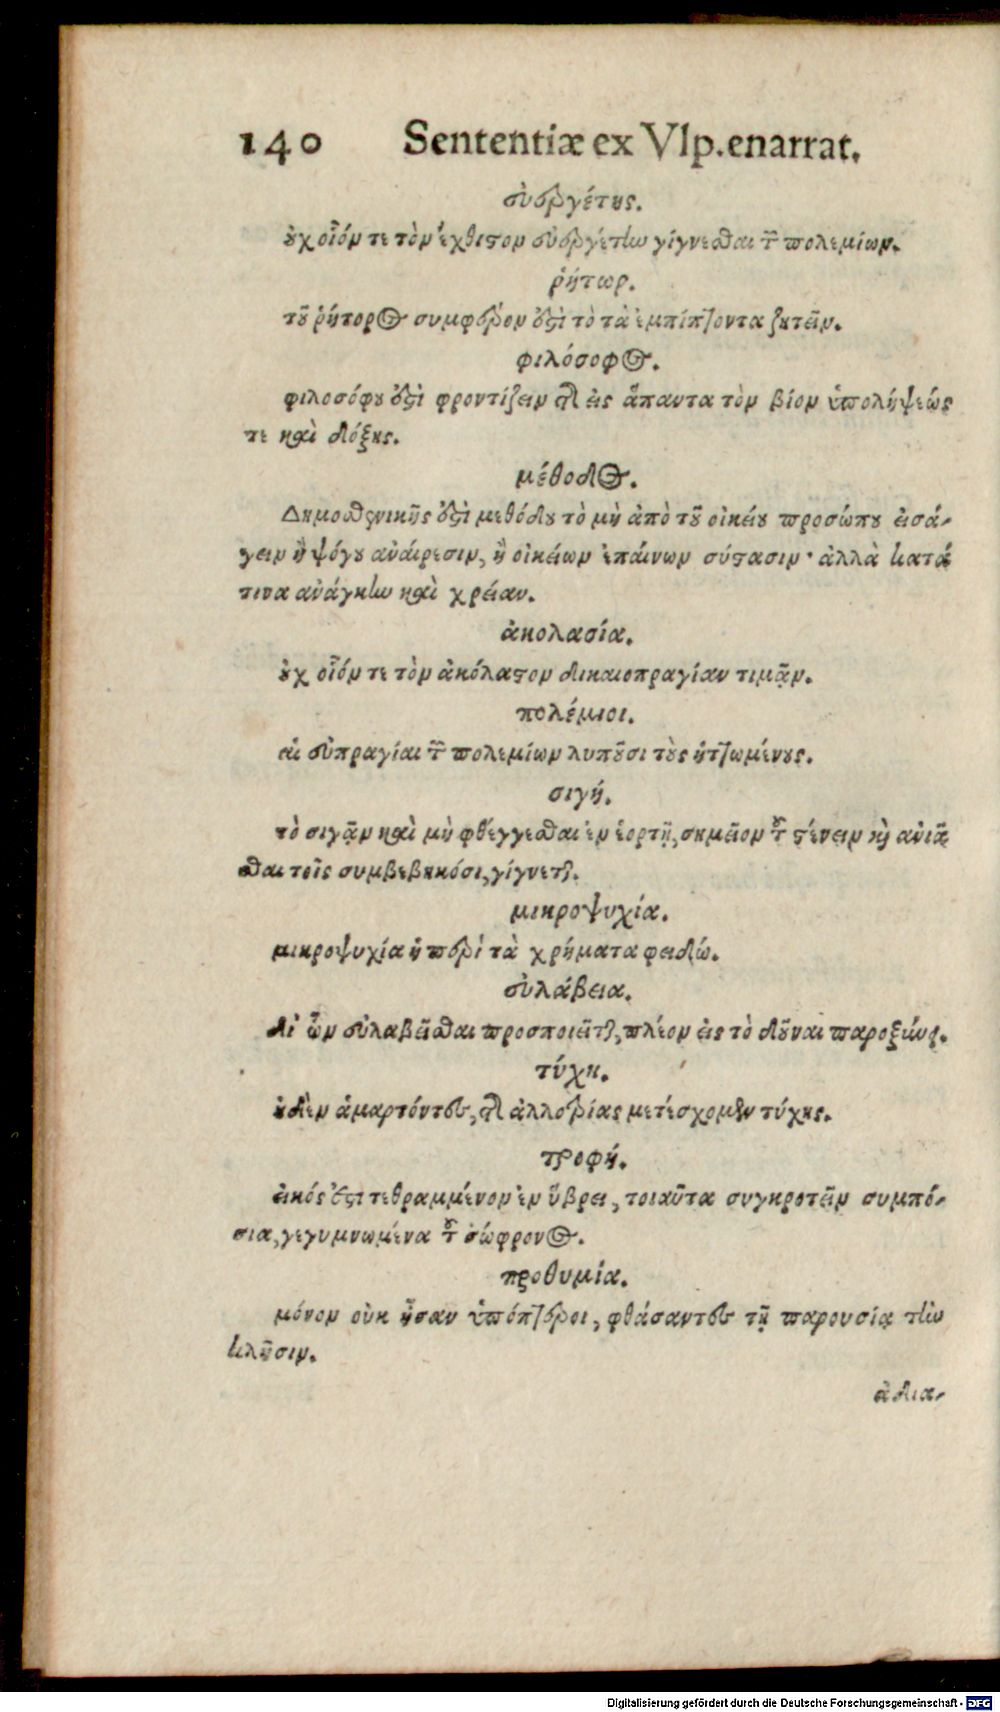 140 Sententiæ ex Vlp.enarrat.
εὐεργέτης.
οὐχ οἷόν τε τὸν ἔχθιστον εὐεργέτην γίγνεσθαι τῶν πολεμίων.
ῥήτωρ.
τοῦ ῥήτορος συμφέρον ἐστὶ τὸ τὰ ἐμπίπτοντα ζητεῖν.
φιλόσοφος.
φιλοσόφου ἐστὶ φροντίζειν τῆς εἰς ἅπαντα τὸν βίον ὑπολήψεώς
τε καὶ δόξης.
μέθοδος.
Δημοσθενικῆς ἐστὶ μεθόδου τὸ μὴ ἀπὸ τοῦ οἰκείου προσώπου εἰσά-
γειν ἢ ψόγου ἀναίρεσιν, ἢ οἰκείων ἐπαίνων σύστασιν· ἀλλὰ κατά
τινα ἀνάγκην καὶ χρείαν.
ἀκολασία.
οὐχ οἷόν τε τὸν ἀκόλαστον δικαιοπραγίαν τιμᾷν.
πολέμιοι.
αἱ εὐπραγίαι τῶν πολεμίων λυποῦσι τοὺς ἡττωμένους.
σιγή.
τὸ σιγᾷν καὶ μὴ φθέγγεσθαι ἐν ἑορτῇ, σημεῖον τοῦ στένειν καὶ ἀνιᾶ
σθαι τοῖς συμβεβηκόσι, γίγνεται.
μικροψυχία.
μικροψυχία ἡ περὶ τὰ χρήματα φειδώ.
εὐλάβεια.
δι' ὧν εὐλαβεῖσθαι προσποιεῖται, πλέον εἰς τὸ δοῦναι παροξύνει.
τύχη.
οὐδὲν ἁμαρτόντες, τῆς ἀλλοτρίας μετέσχομεν τύχης.
τροφή.
εἰκός ἐστι τεθραμμένον ἐν ὕβρει, τοιαῦτα συγκροτεῖν συμπό-
σια, γεγυμνωμένα τοῦ σώφρονος.
προθυμία.
μόνον οὐκ ἦσαν ὑπόπτεροι, φθάσαντες τῇ παρουσίᾳ τὴν
κλῆσιν.
ἀδια-
Digitalisierung gefördert durch die Deutsche Forschungsgemeinschaft - DFG